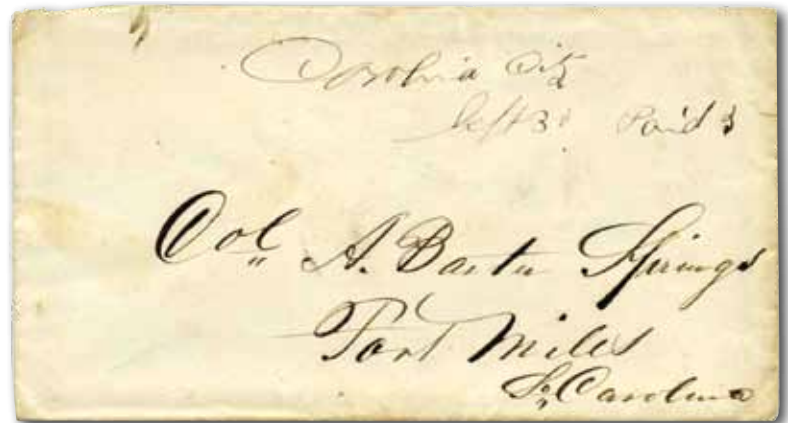 Carolina City
Sept 3d Paid 3
Col. A. Baxter Springs
Fort Mills
So, Carolina